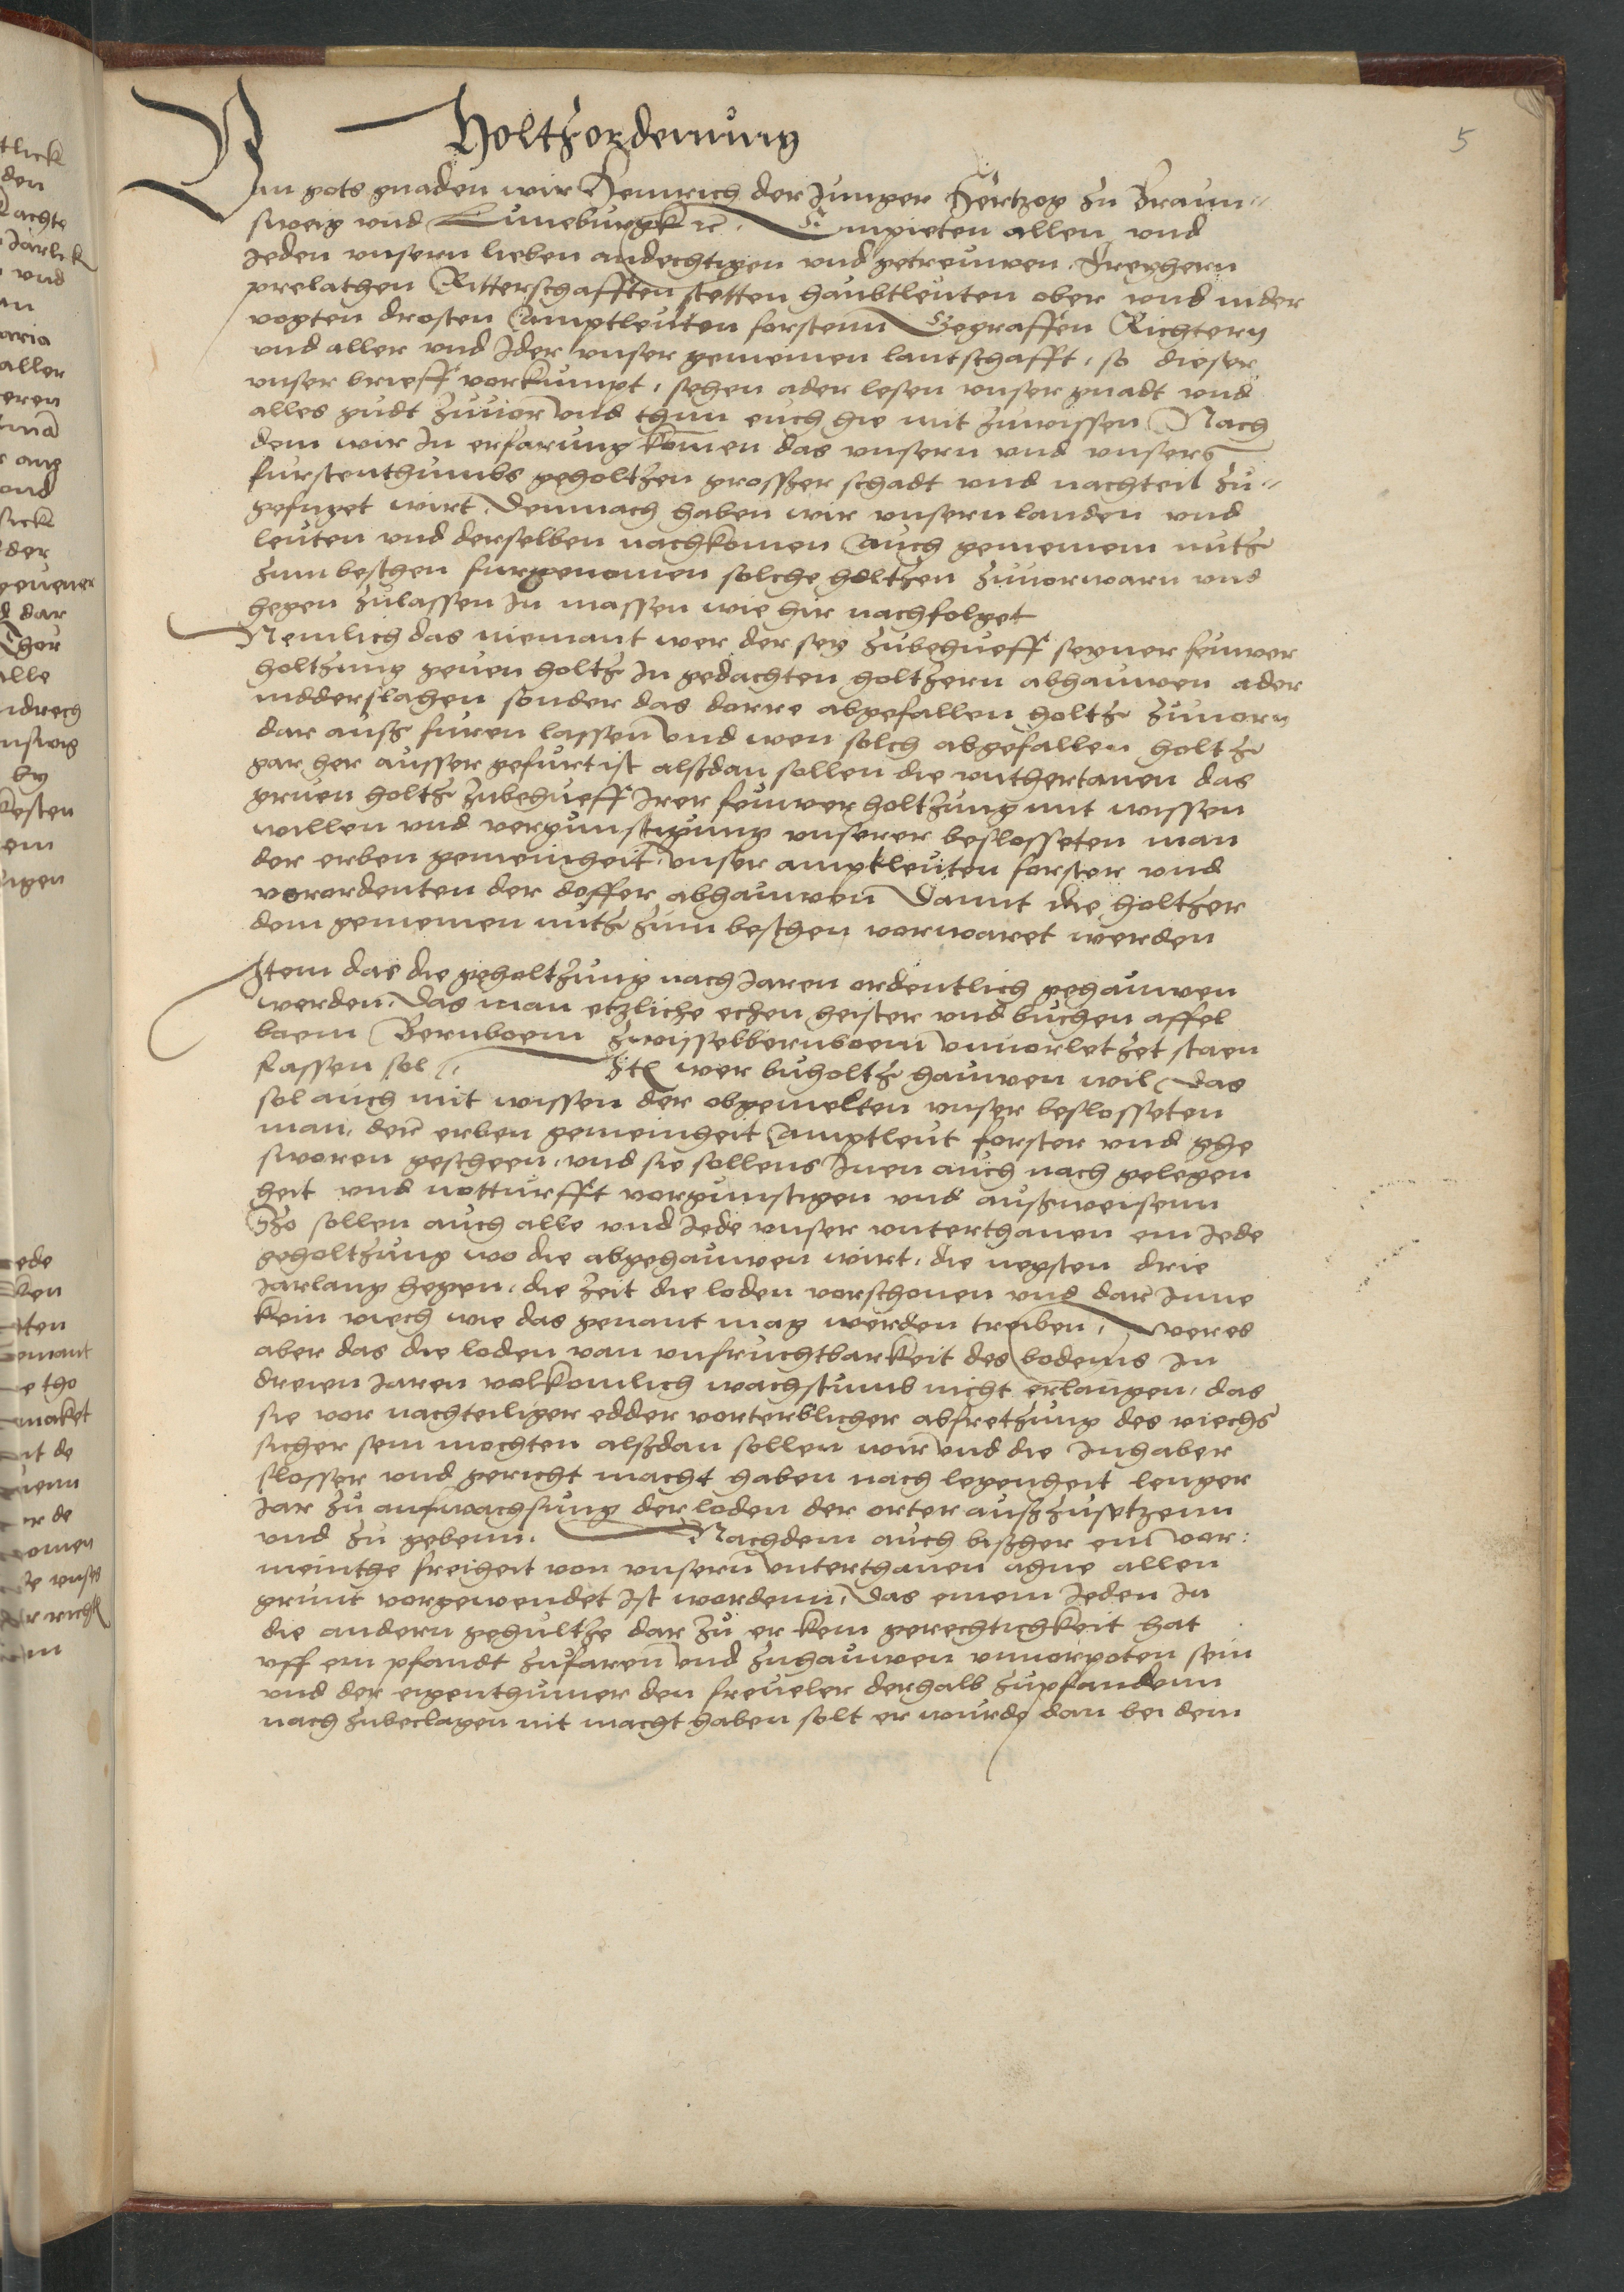 5
Holtzordenung
Von gots gnaden wir Heinrich der Junger Hertzog zu Braun-
sweig vnd Luneburgk rc. Empieten allen vnd
Jeden vnsern lieben andechtigen vnd getreuwen Freyhern
prelathen Ritterschafften stetten haubtleuten ober vnd nider
vogten drosten amptleuten forstenn Gegraffen Richtern
vnd aller vnd Jder vnser gemeinen lantschafft, so dieser
vnser brieff vorkumpt, sehen ader lesen vnser gnadt vnd
alles gudt zuuorn vnd thun euch hie mit zuwissen Nach
dem wir In erfarung komen das vnsern vnd vnsers
furstenthumbs geholtzen grosser schadt vnd nachteil zu-
gefuget wirt, Demnach haben wir vnsern landen vnd
leuten vnd derselben nachkomen auch gemeinem nutz
zum besthen furgenomen solche holtzen zuuorwarn vnd
hegen zulassen In massen wie hir nachfolget
Nemlich das niemant wer der sey zubehueff seyner feuwer
holtzung gruen holtz In gedachten holtzern abhauwen ader
nidderslagen sonder das dorre abgefallen holtz zuuorn
dar ausz furen lassenn vnd wen solch abgefallen holtz
gar her ausser gefurt ist alszdan sollen die vnthertanen das
gruen holtz zubehueff Irer feuwer holtzung mit wissen
willen vnd vergunstigung vnserer beslosseten man
der erben gemeinheit, vnser amptleuten forster vnd
verordenten der dosser abhauwen Damit die holtzer
dem gemeinen nutz zum besthen vorwaret werden
Item das die geholtzung nach Jaren ordentlich gehauwen
werden, Das man etzliche echen heister vnd buchen affel
boem Bernboem zwisselbernboem vnuorletzet staen
lassen sol, Itē wer buholtz hauwen wil, Das
sol auch mit wissen der obgemelten vnser beslosseten
man, dere erben gemeinheit Amptleut forster vnd ghe
sworen gescheen, vnd sie sollens Inen auch nach gelegen
heit vnd notturfft vorgunstigen vnd auszweisenn
Szo sollen auch alle vnd Jede vnser vnterthanen ein Jede
geholtzung wo die abgehauwen wirt, die negsten drie
Jarlang hegen, die Zeit die loden vorschonen vnd dar Inne
kein viech wie das genant mag werden treiben, Wer es
aber das die loden van vnfruchtbarkeit des bodems In
dreien Jaren volkomlich wachstumb nicht erlangen, das
sie vor nachteiliger edder vorterblicher abfretzung des viechs
sicher sein mochten alszdan sollen wir vnd die Inhaber
slosser vnd gericht macht haben nach legenheit lenger
Jar zu aufwachsung der loden der orter auszzusetzenn
vnd zu gebenn. Nachdem auch biszher ein vor:
meinthe freiheit von vnsern vnterthanen ahne allen
grunt vorgewendet Ist wordenn, Das einem Jeden In
die andern gehultze dar zu er kein gerechtichkeit hat
vff ein pfandt zufaren vnd zuhauwen vnuorpoten sein
vnd der eigenthumer den freueler derhalb zupfandenn
nach zubeclagen nit macht haben solt er wurde dan bei dem